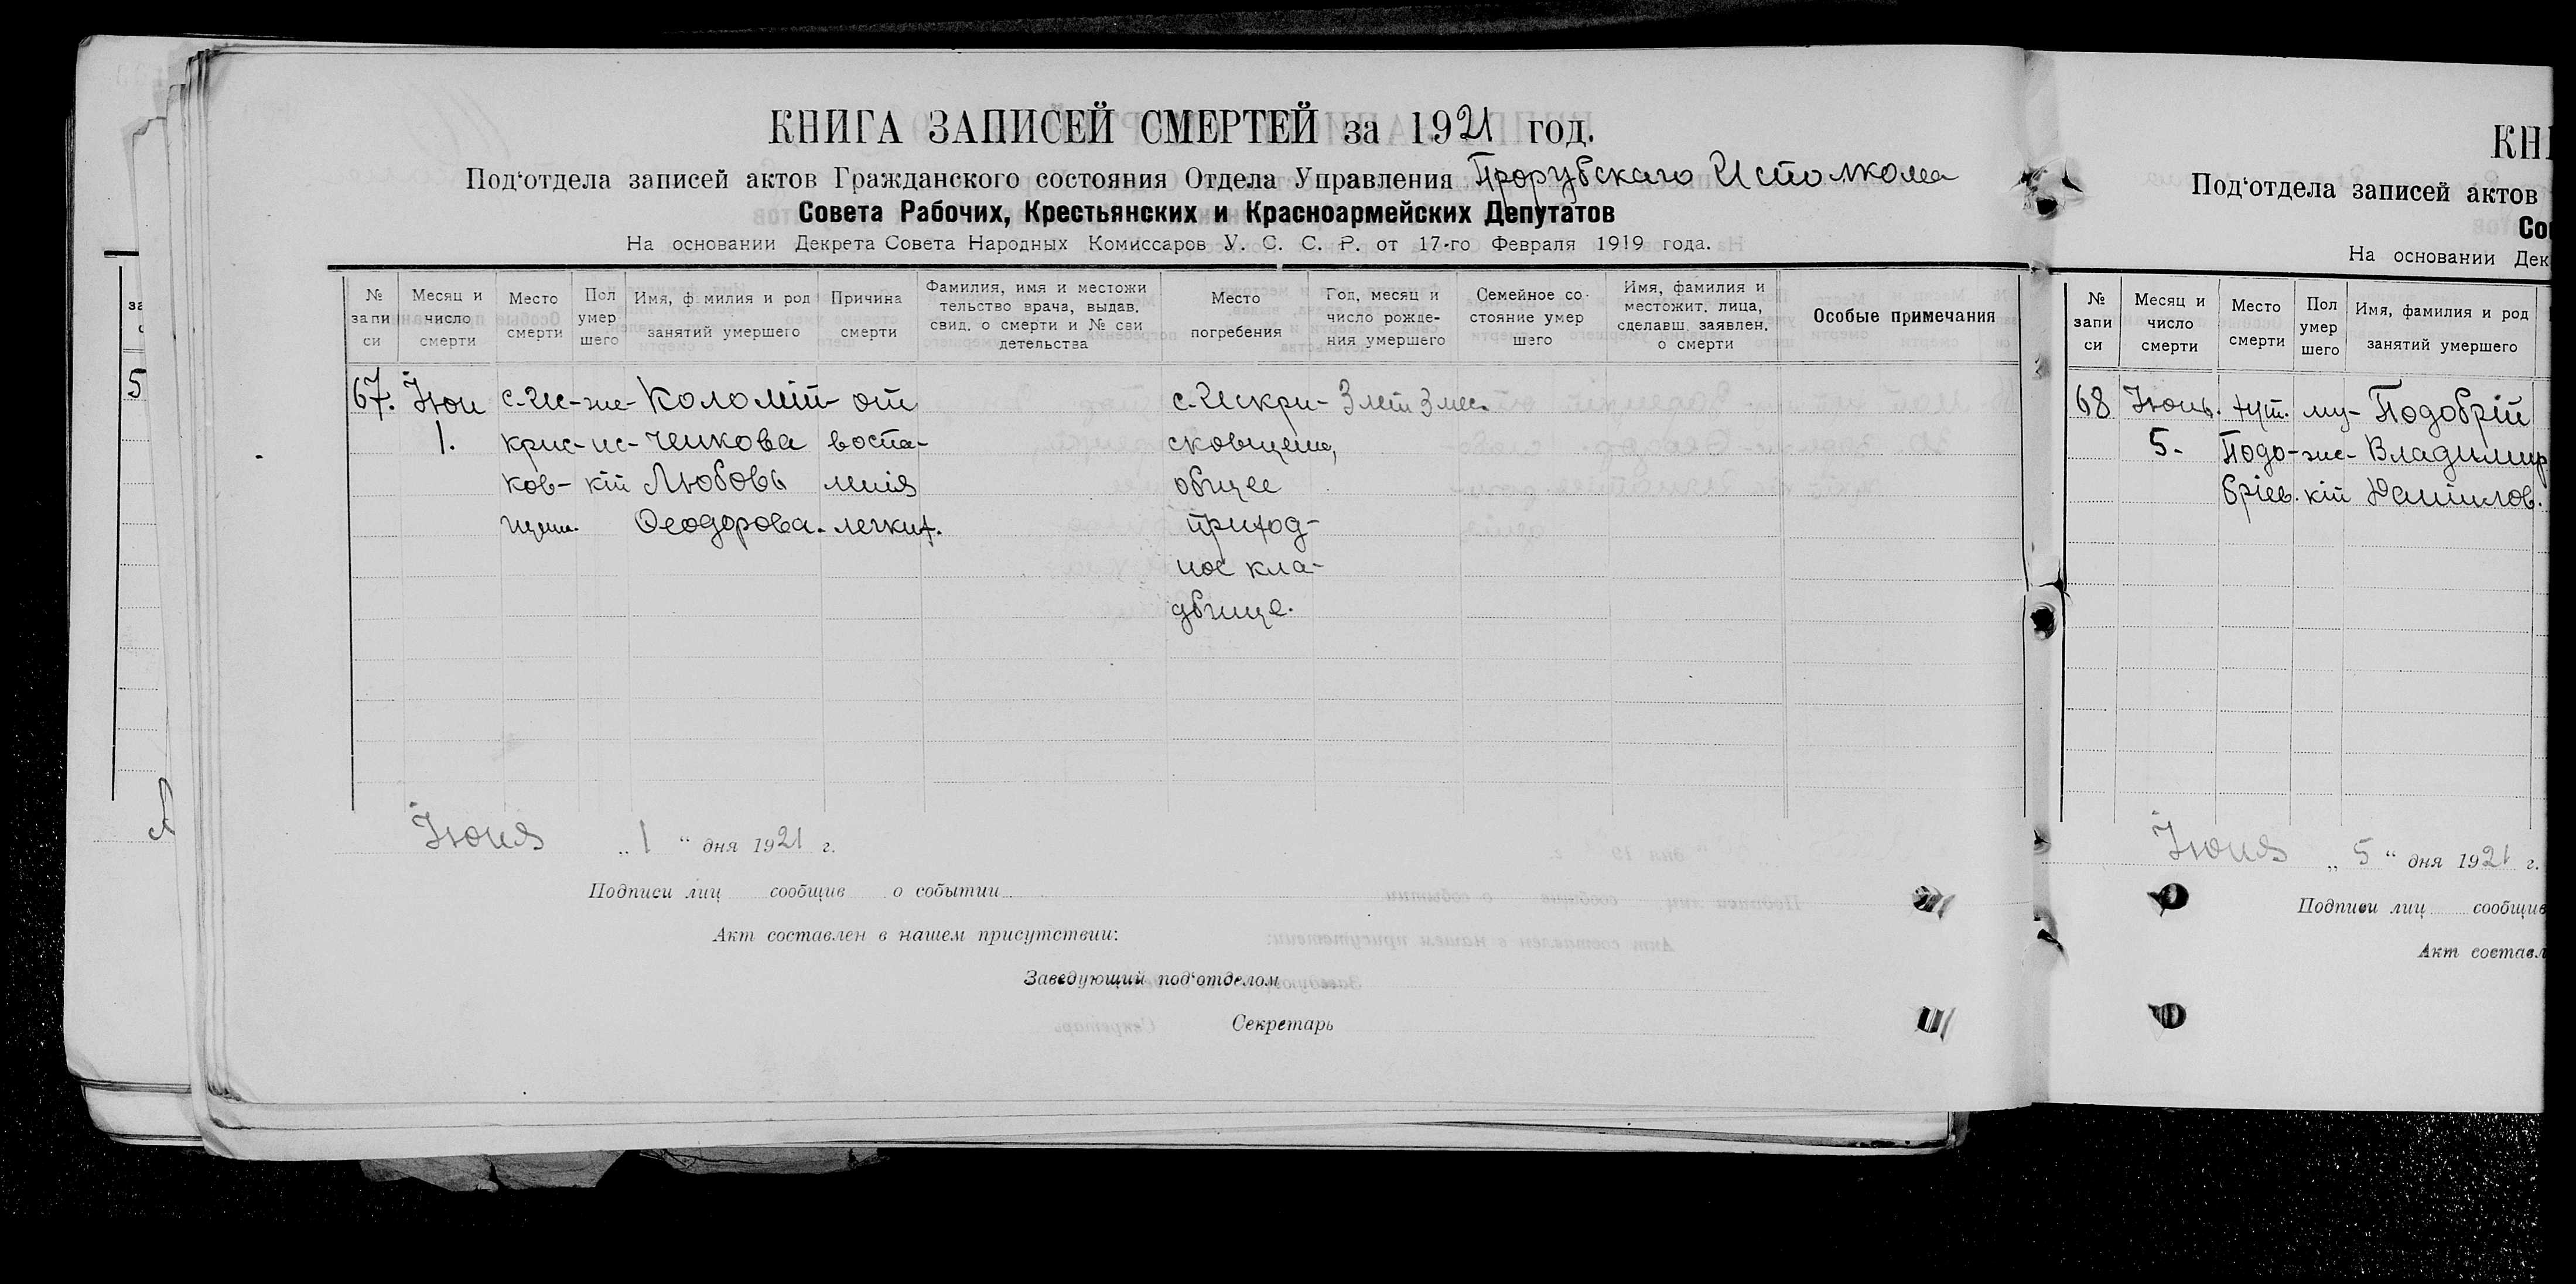 КНИГА ЗАПИСЕЙ СМЕРТЕЙ за 1921 год.
Под‘отдела записей актов Гражданского состояния Отдела Управления Прорубскаго Исполкома
Совета Рабочих, Крестьянских и Красноармейских Депутатов
На основании Декрета Совета Народных Комиссаров У. С. С. Р. от 17-го Февраля 1919 года.
№ запи си
Месяц и число смерти
Место смерти
Пол умер шего
Имя, ф милия и род занятий умершего
Причина смерти
Фамилия, имя и местожи тельство врача, выдав. свид. о смерти и № сви детельства
Место погребения
Год, месяц и число рожде- ния умершего
Семейное со- стояние умер шего
Имя, фамилия и местожит. лица, сделавш. заявлен. о смерти
Особые примечания
67. Іюн с. Ис- же- Коломій- от с. Искри- 3 лет 3 мес.
1. крис- нс- ченкова воспа- сковщене,
ков- кій Любовь ленія общее
щене. Ѳеодорова. легких. приход-
ное кла-
дбище.
Іюня „ 1 “ дня 1921 г.
Подписи лиц сообщив о событии
Акт составлен в нашем присутствии:
Заведующий под‘отделом
Секретарь
за
5
КНИ
Под‘отдела записей актов
Со
На основании Дек
№ запи си
Месяц и число смерти
Место смерти
Пол умер шего
Имя, фамилия и род занятий умершего
68 Іюнь. хут. му- Подобрій
5. Подо- жс- Владимир
бріев. кій Даніилов.
Іюня „ 5 “ дня 1921 г.
Подписи лиц сообщив
Акт составл